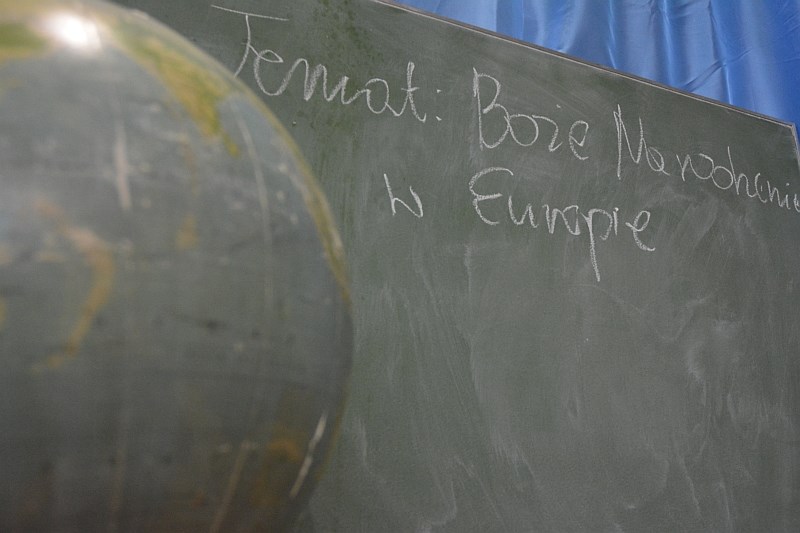 Temat: Boże Narodzenie
w Europie